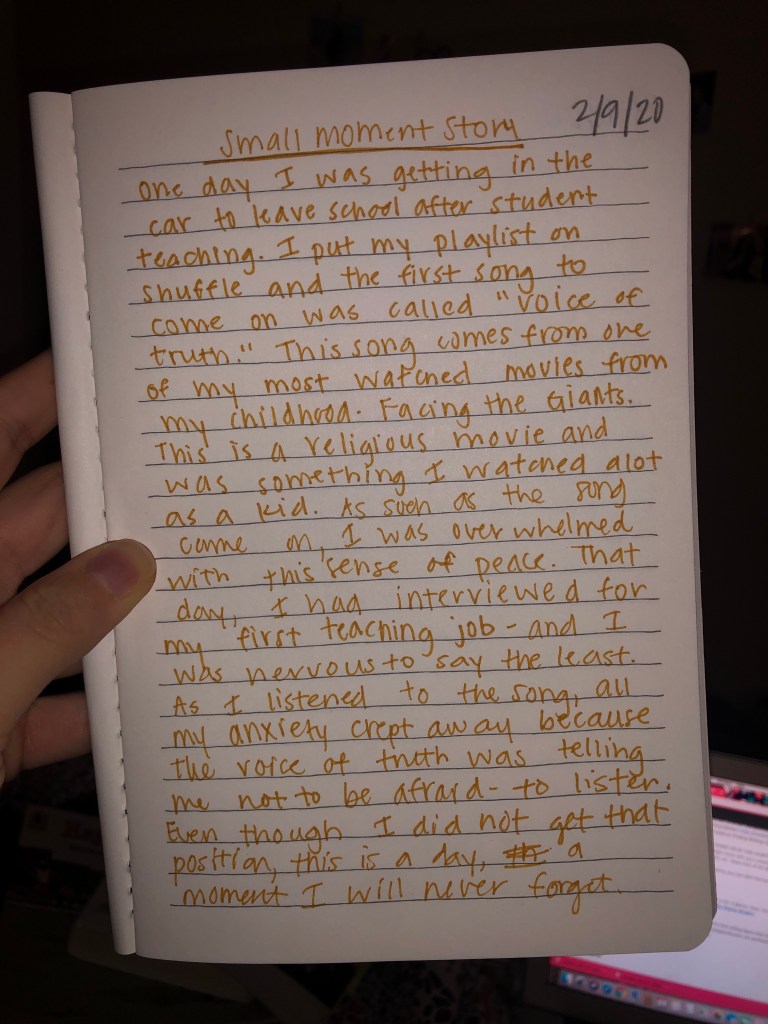 2/9/20
Small Moment Story
One day I was getting in the
car to leave school after student
teaching. I put my playlist on
shuffle and the first song to
come on was called "voice of
truth." This song comes from one
of my most watched movies from
my childhood. Facing the Giants.
This is a religious movie and
was something I watched alot
as a kid. As soon as the song
came on, I was overwhelmed
with this sense of peace. That
day, I had interviewed for
my first teaching job - and I
was nervous to say the least.
As I listened to the song, all
my anxiety crept away because
the voice of truth was telling
me not to be afraid - to listen.
Even though I did not get that
position, this is a day, a
moment I will never forget.